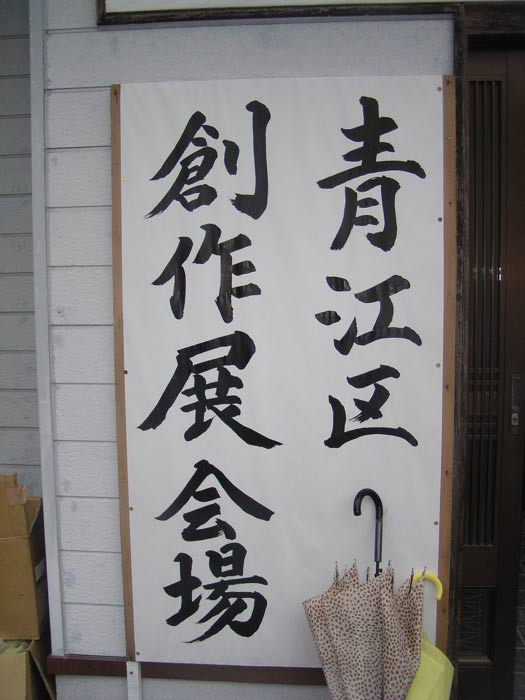 青江区
創作展会場